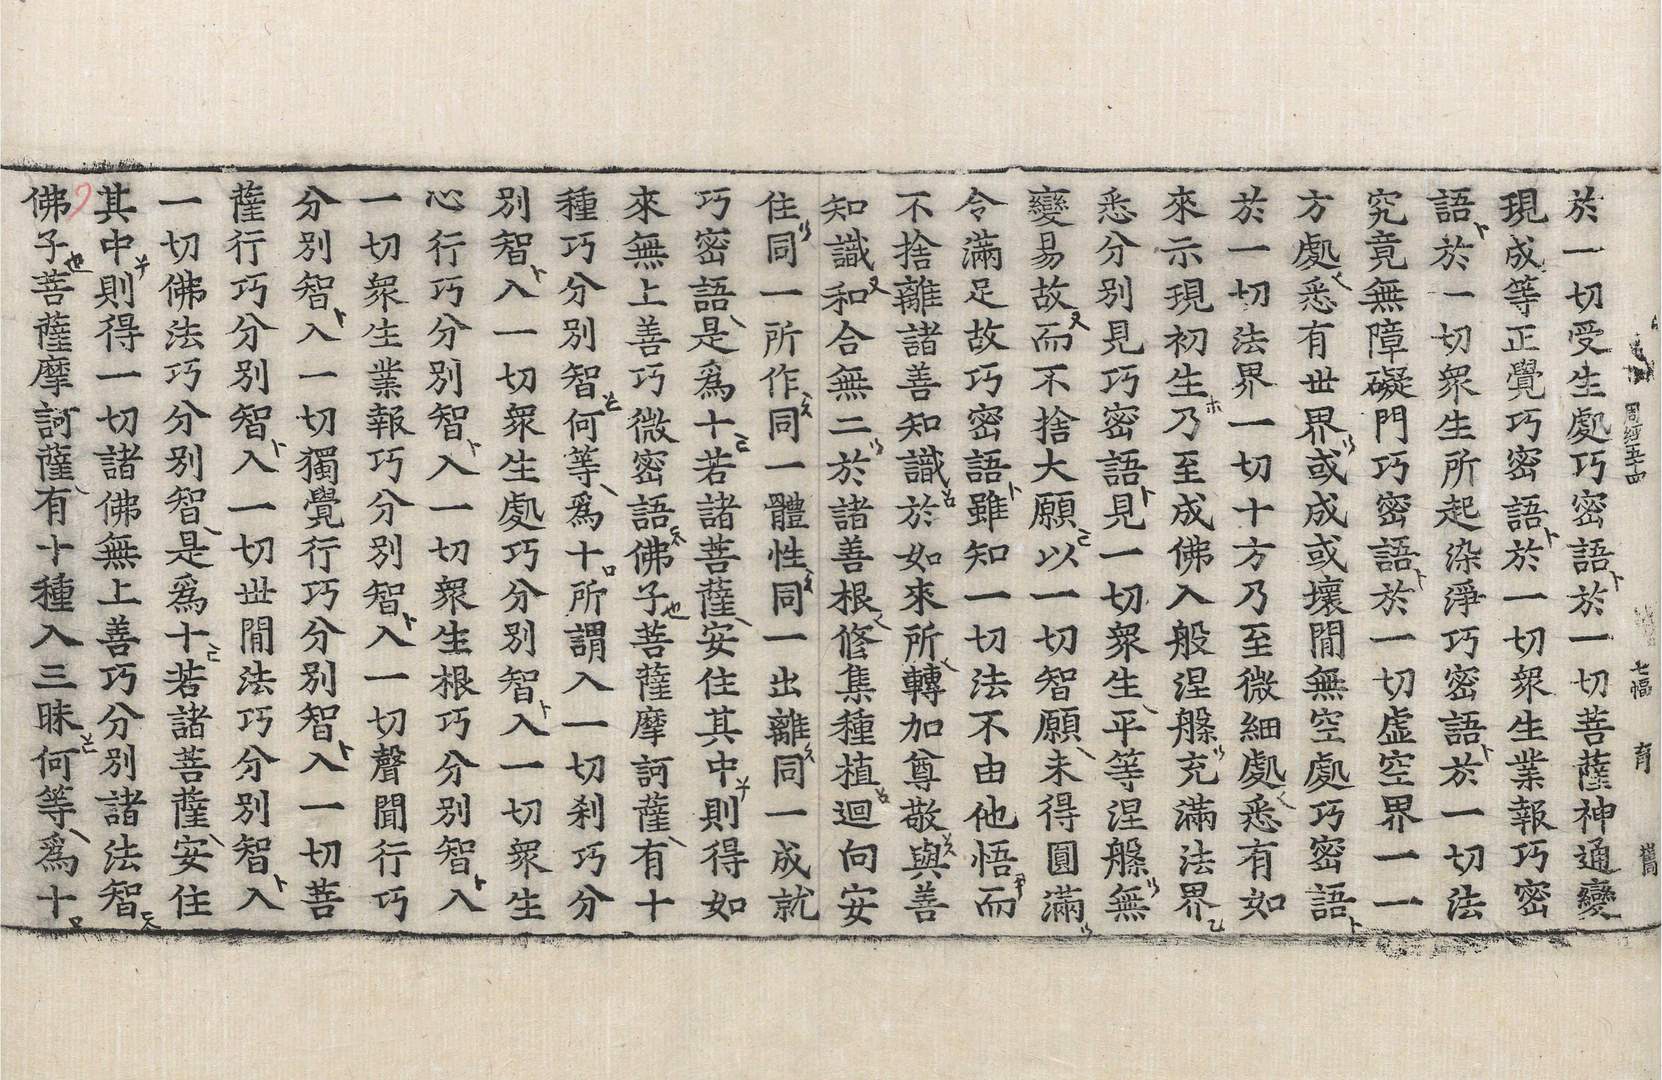 周經五十四 七幅 育 舊
於一切受生處巧密語於一切菩薩神通變
現成等正覺巧密語於一切衆生業報巧密
語於一切衆生所起染淨巧密語於一切法
究竟無障礙門巧密語於一切虛空界一一
方處悉有世界或成或壞閒無空處巧密語
於一切法界一切十方乃至微細處悉有如
來示現初生乃至成佛入般涅槃充滿法界
悉分別見巧密語見一切衆生平等涅槃無
變易故而不捨大願以一切智願未得圓滿
令滿足故巧密語雖知一切法不由他悟而
不捨離諸善知識於如來所轉加尊敬與善
知識和合無二於諸善根修集種植迴向安
住同一所作同一體性同一出離同一成就
巧密語是爲十若諸菩薩安住其中則得如
來無上善巧微密語佛子菩薩摩訶薩有十
種巧分別智何等爲十所謂入一切刹巧分
別智入一切衆生處巧分別智入一切衆生
心行巧分別智入一切衆生根巧分別智入
一切衆生業報巧分別智入一切聲聞行巧
分別智入一切獨覺行巧分別智入一切菩
薩行巧分別智入一切世閒法巧分別智入
一切佛法巧分別智是爲十若諸菩薩安住
其中則得一切諸佛無上善巧分別諸法智
佛子菩薩摩訶薩有十種入三昧何等爲十